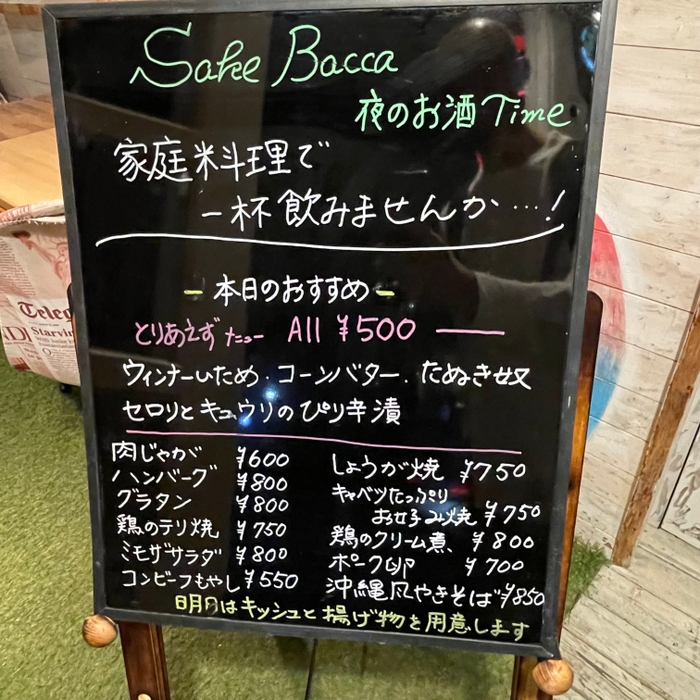 Sake Bacca
夜のお酒 Time
家庭料理で
一杯飲みませんか…!
本日のおすすめ
とりあえずメニュー All ¥500
ウィンナーいため・コーンバター・たぬき奴
セロリとキュウリのぴり辛漬
肉じゃが ¥600
ハンバーグ ¥800
グラタン ¥800
鶏のテリ焼 ¥750
ミモザサラダ ¥800
コンビーフもやし ¥550
しょうが焼 ¥750
キャベツたっぷり
お好み焼 ¥750
鶏のクリーム煮 ¥800
ポーク卵 ¥700
沖縄風やきそば ¥850
明日はキッシュと揚げ物を用意します
Teleg
Starvin